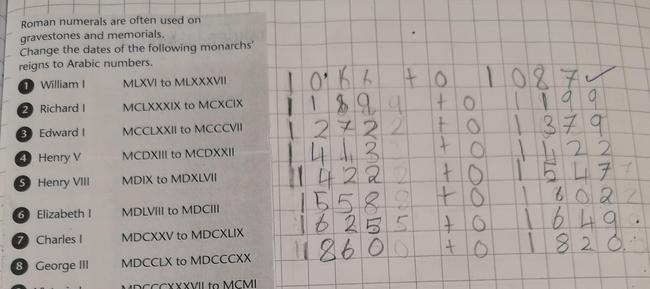 Roman numerals are often used on
gravestones and memorials.
Change the dates of the following monarchs'
reigns to Arabic numbers.
1 William I MLXVI to MLXXXVII 1066 to 1087 ✓
2 Richard I MCLXXXIX to MCXCIX 1189 to 1199
3 Edward I MCCLXXII to MCCCVII 1272 to 1379
4 Henry V MCDXIII to MCDXXII 1413 to 1422
5 Henry VIII MDIX to MDXLVII 1422 to 1547
6 Elizabeth I MDLVIII to MDCIII 1558 to 1602
7 Charles I MDCXXV to MDCXLIX 1625 to 1649.
8 George III MDCCLX to MDCCCXX 1860 to 1820.
MDCCCXXXVII to MCMI